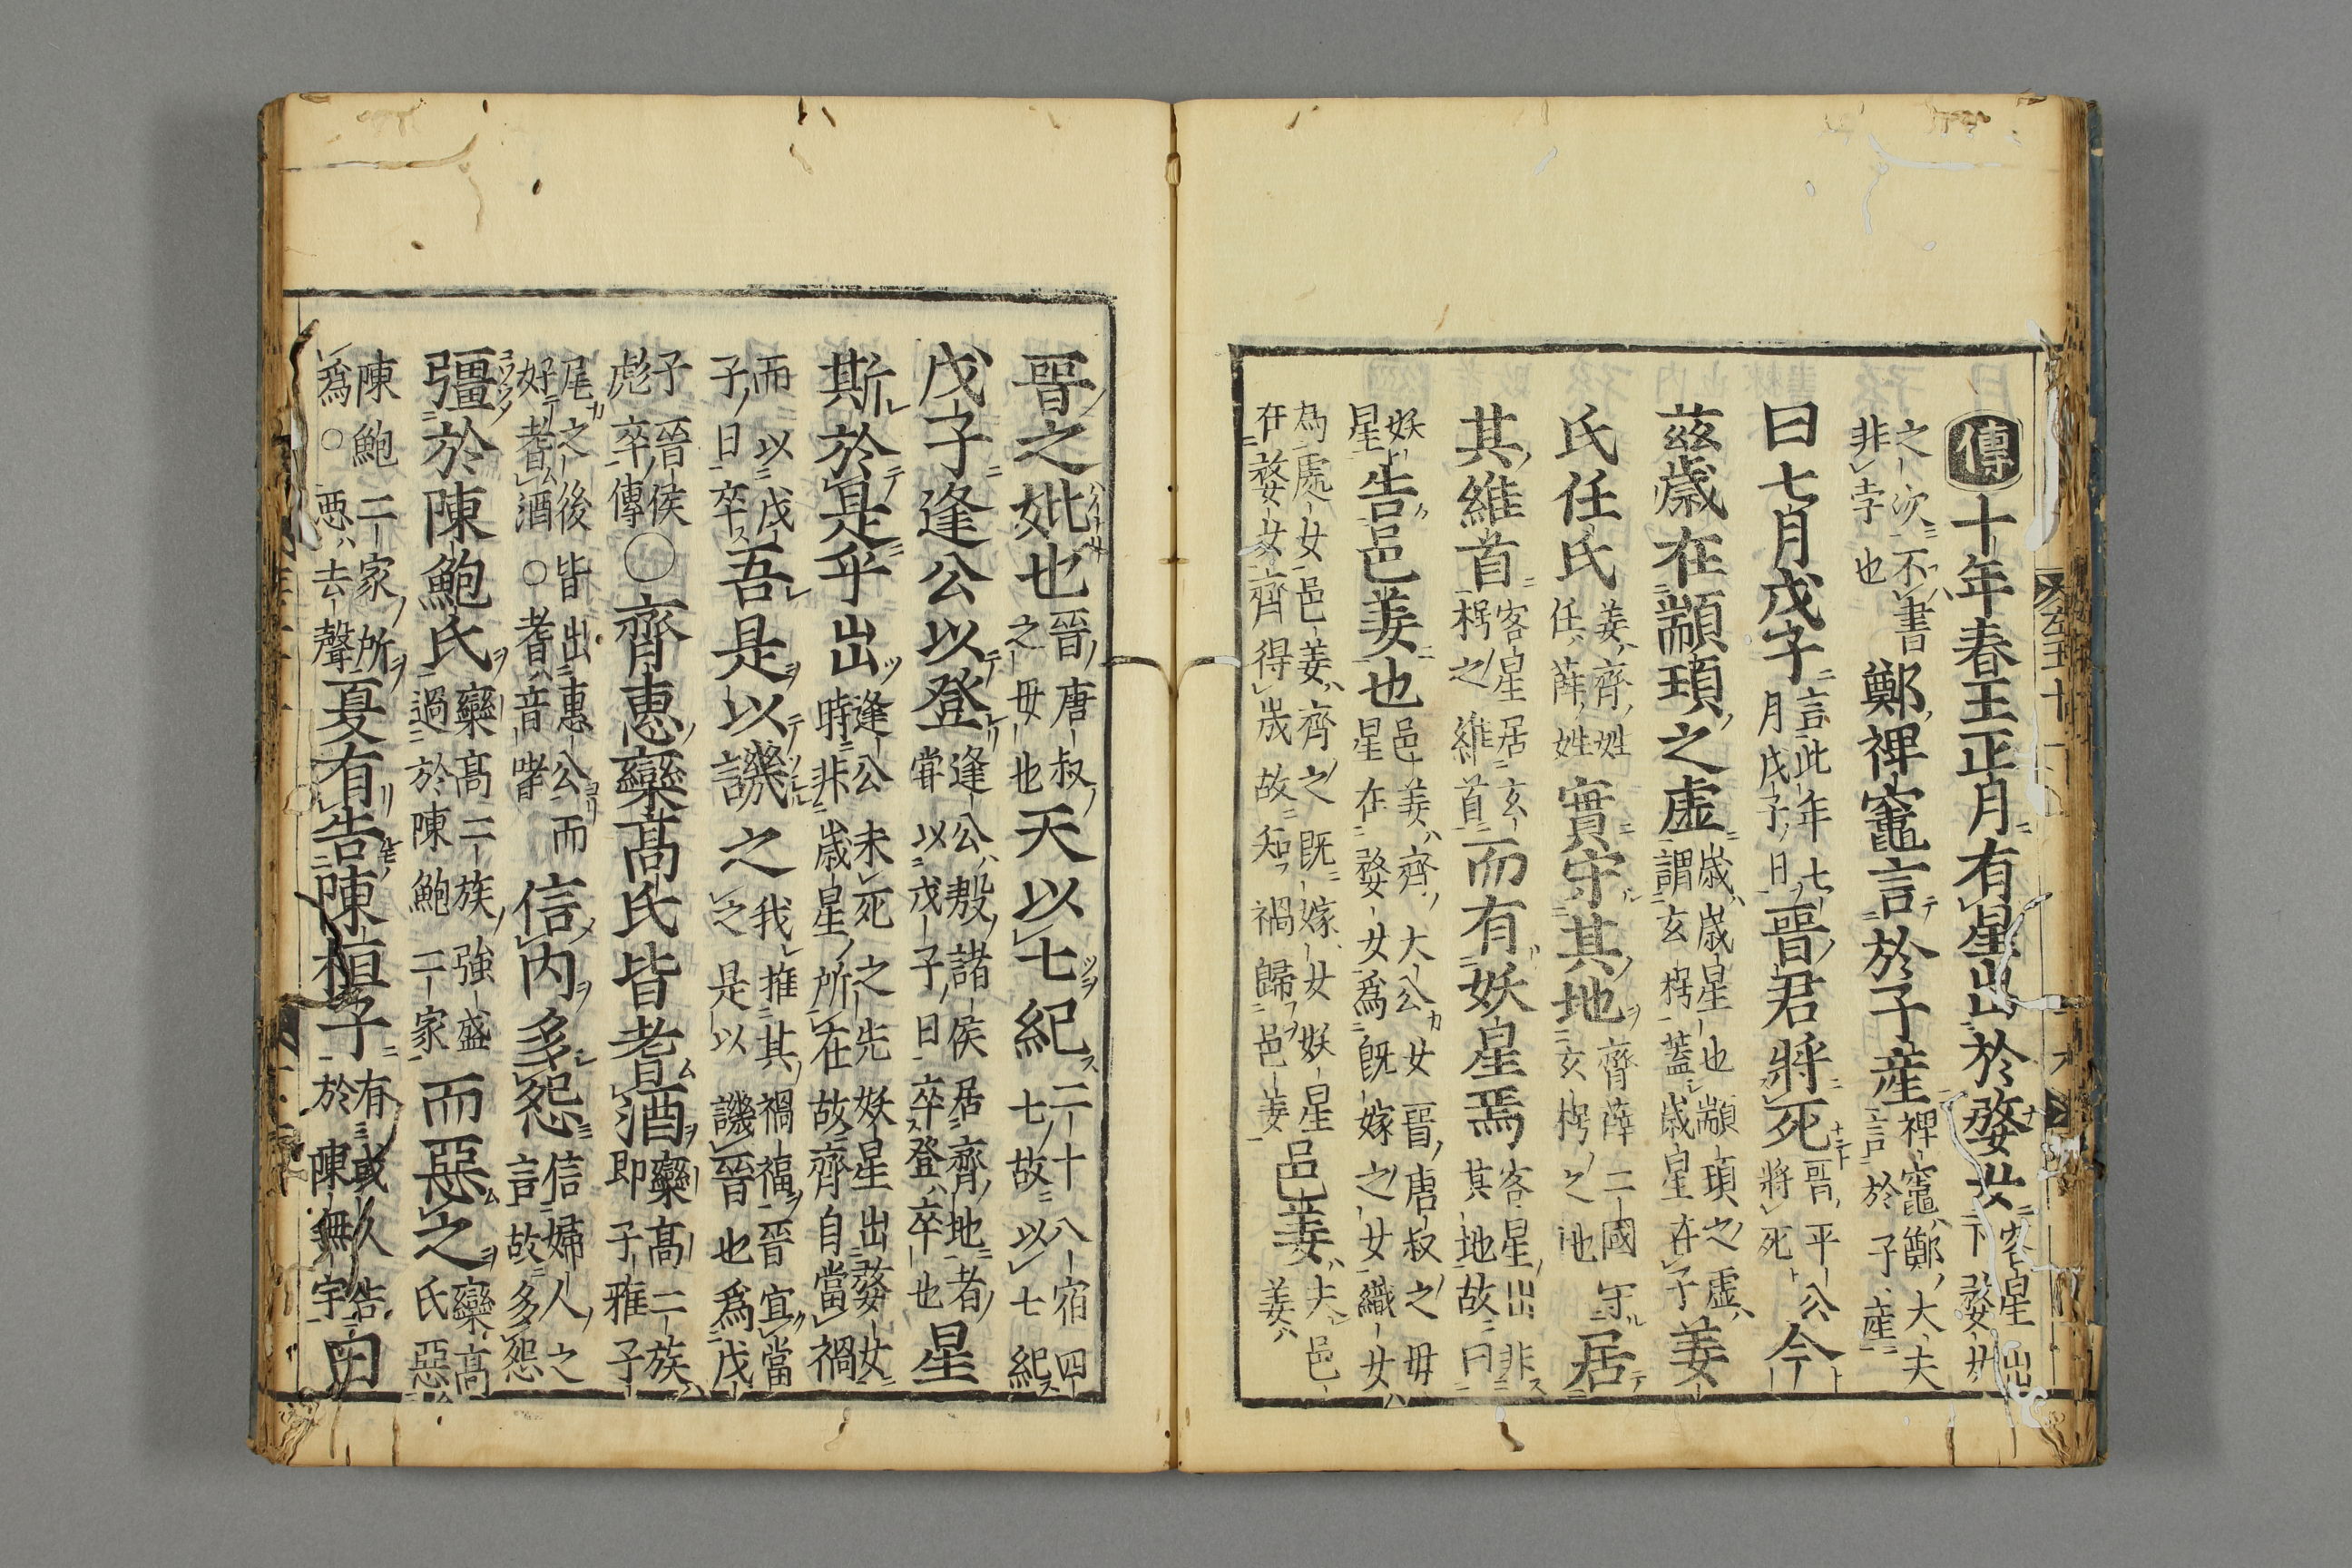 傳十年春王正月有星出於婺女客星出下婺女
之次不書非孛也鄭裨竈言於子產裨竈鄭大夫言於子產
曰七月戊子言此年七月戊子日晉君將死晉平公將死今
茲歲在顓頊之虛歲歲星也顓頊之虛謂玄枵蓋歲星在子姜
氏任氏姜齊姓任薛姓實守其地齊薛二國守玄枵之地居
其維首客星居玄枵之維首而有妖星焉客星出非其地故曰
妖星告邑姜也邑姜齊大公女晉唐叔之母星在婺女女爲既嫁之女織女
為處女邑姜齊之既嫁女妖星在婺女齊得歲故知禍歸邑姜邑姜夫邑姜
晉之妣也晉唐叔之母也天以七紀二十八宿四七故以七紀
戊子逢公以登逢公殷諸侯居齊地者嘗以戊子日卒登卒也星
斯於是乎出逢公未死之先妖星出婺女時非歲星所在故齊自當禍
而以戊子日卒吾是以譏之我推其禍福晉宜當之是以譏晉也爲戊
子晉侯彪卒傳○齊惠欒高氏皆耆酒欒高二族即子雅子
尾之後皆出惠公而好耆酒○耆音嗜信內多怨信婦人之言故多怨
彊於陳鮑氏欒高二族強盛過於陳鮑二家而惡之欒高氏惡
陳鮑二家所爲○惡去聲夏有告陳桓子有或人告於陳無宇曰